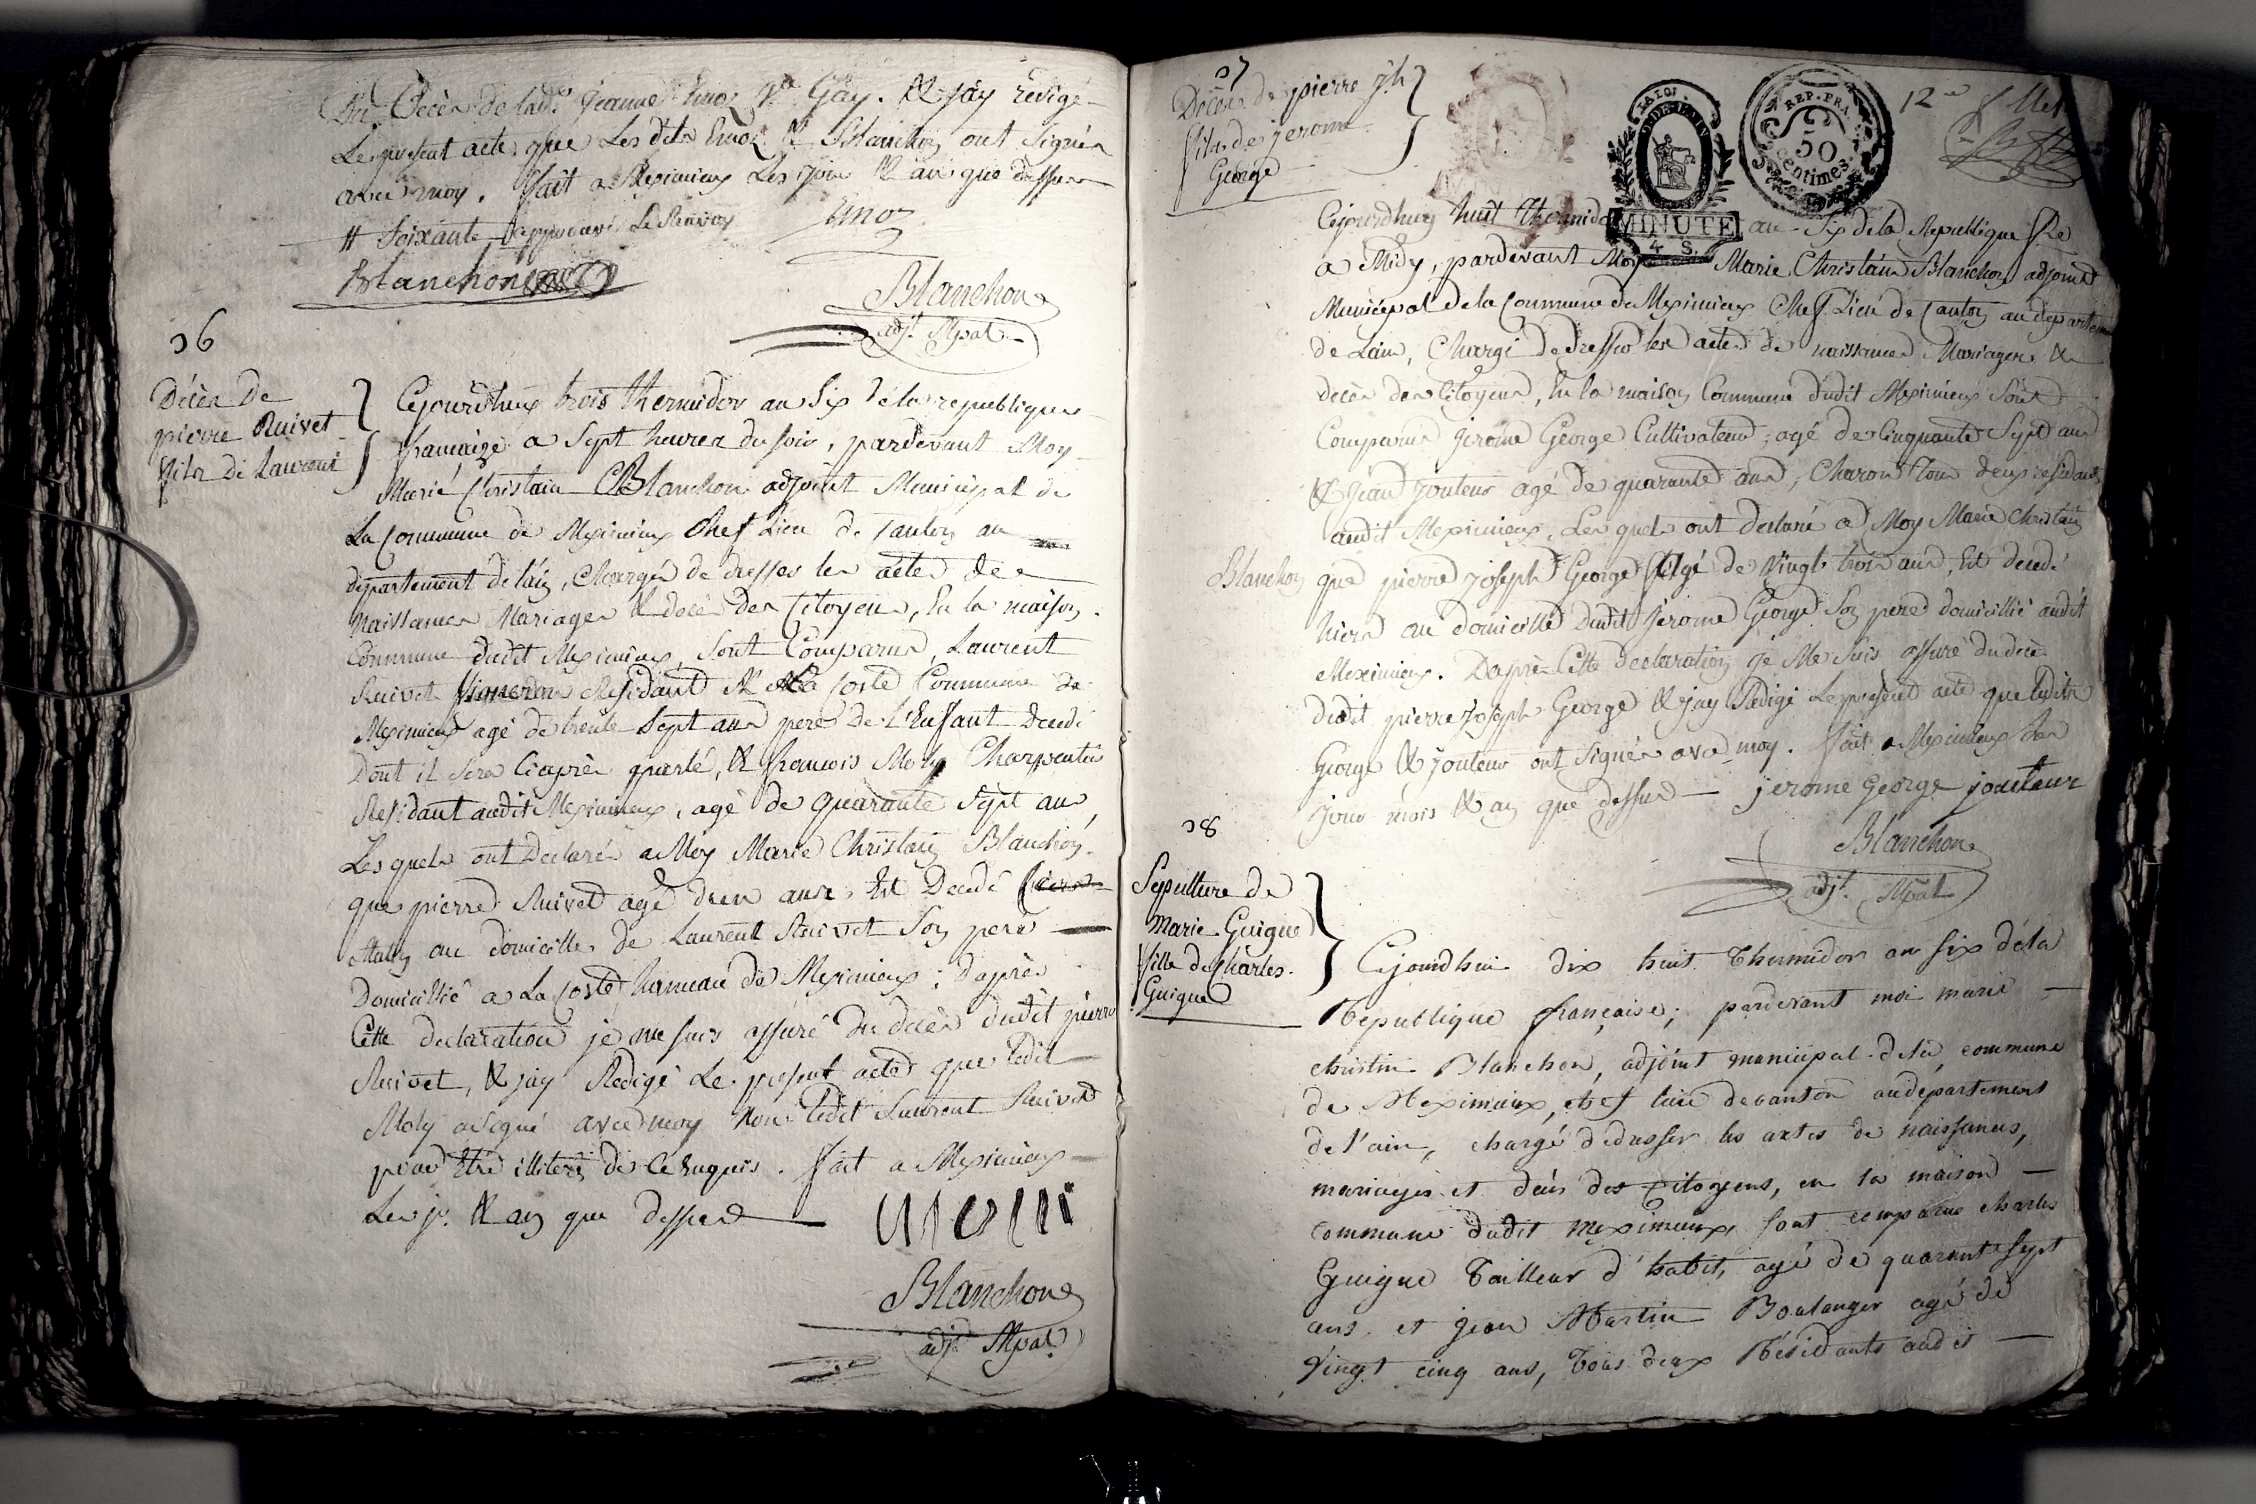 du Décès de lad.e Jeanne hnoz v.e Gay. & jay rédigé
Le présent acte que Les dits hnoz & Blanchon ont signés
avec moy. fait a Meximieux Les jour & an que dessus
# soixante approuvé Le Renvoy
Blanchon
Blanchon
adj.t Mpal
36
Décès de
pierre Ruivet
fils de Laurent
Cejourdhuy trois thermidor an Six de la republique
francaize a Sept heures du soir, pardevant Moy
Marie Christain Blanchon adjoint Municipal de
La Commune de Meximieux Chef Lieu de Canton au
département de l'ain, Chargé de dresser les actes de
Naissances Mariages & decès des Citoyens, En la maison
Commune dudit Meximieux, Sont Comparus, Laurent
Ruivet Vigneron Residant à La Coste Commune de
Meximieux agé de trente Sept ans pere de l'Enfant Decedé
Dont il sera Ciaprès parlé, & francois Moly Charpentier
Residant audit Meximieux, agé de quarante Sept ans,
Lesquels ont Declaré a Moy Marie Christain Blanchon
que pierre Ruivet agé de
est Decedé
au domicille de Laurent Ruivet Son pere
Domicillié a La Coste hameau de Meximieux; D'après
Cette declaration je me suis assuré du decès dudit pierre
Ruivet, & jay Redigé Le present acte que ledit
Moly a signé avec moy Non Ledit Laurent Ruivet
pour être illiteré de ce Enquis. fait a Meximieux
Les j.r & an que dessus
Molli
Blanchon
adj.t Mpal
37
Décès de pierre jh
fils de jerome
George
LA LOI
MINUTE
4 S.
REP. FRA.
50
centimes
12
Cejourdhuy huit Thermidor an Six de la Republique
a Midy, pardevant Moy Marie Christain Blanchon adjoint
Municipal de la Commune de Meximieux Chef Lieu de Canton au departement
de Lain, Chargé de dresser les actes de naissances Mariages &
decès des Citoyens, En la maison Commune dudit Meximieux Sont
Comparus jerome George Cultivateur, agé de Cinquante Sept ans
& jean jouteur agé de quarante ans, Charon tous deux residants
audit Meximieux, Lesquels ont declaré a Moy Marie Christain
Blanchon que pierre joseph George agé de Vingt trois ans, Est decedé
hiers au domicille dudit jerome George Son pere domicillié audit
Meximieux. Daprès Cette declaration je Me suis assuré du decès
dudit pierre joseph George & jay Redigé Le present acte que lesdits
George & jouteur ont Signés avec moy. fait a Meximieux Les
jour mois & an que dessus jerome George jouteur
Blanchon
adj.t Mpal
38
Sépulture de
Marie Guigue
fille de Charles
Guigue
Cejourdhui dix huit thermidor an six de la
République française; pardevant moi marie
christin Blanchon, adjoint municipal de la commune
de Meximieux, chef lieu de canton au département
de l'ain, chargé de dresser les actes de naissances,
mariages et décès des Citoyens, en la maison
commune dudit Meximieux, sont comparus charles
Guigue Tailleur d'habit, agé de quarante sept
ans, et jean Martin Boulanger agé de
vingt cinq ans, tous deux Résidants audit